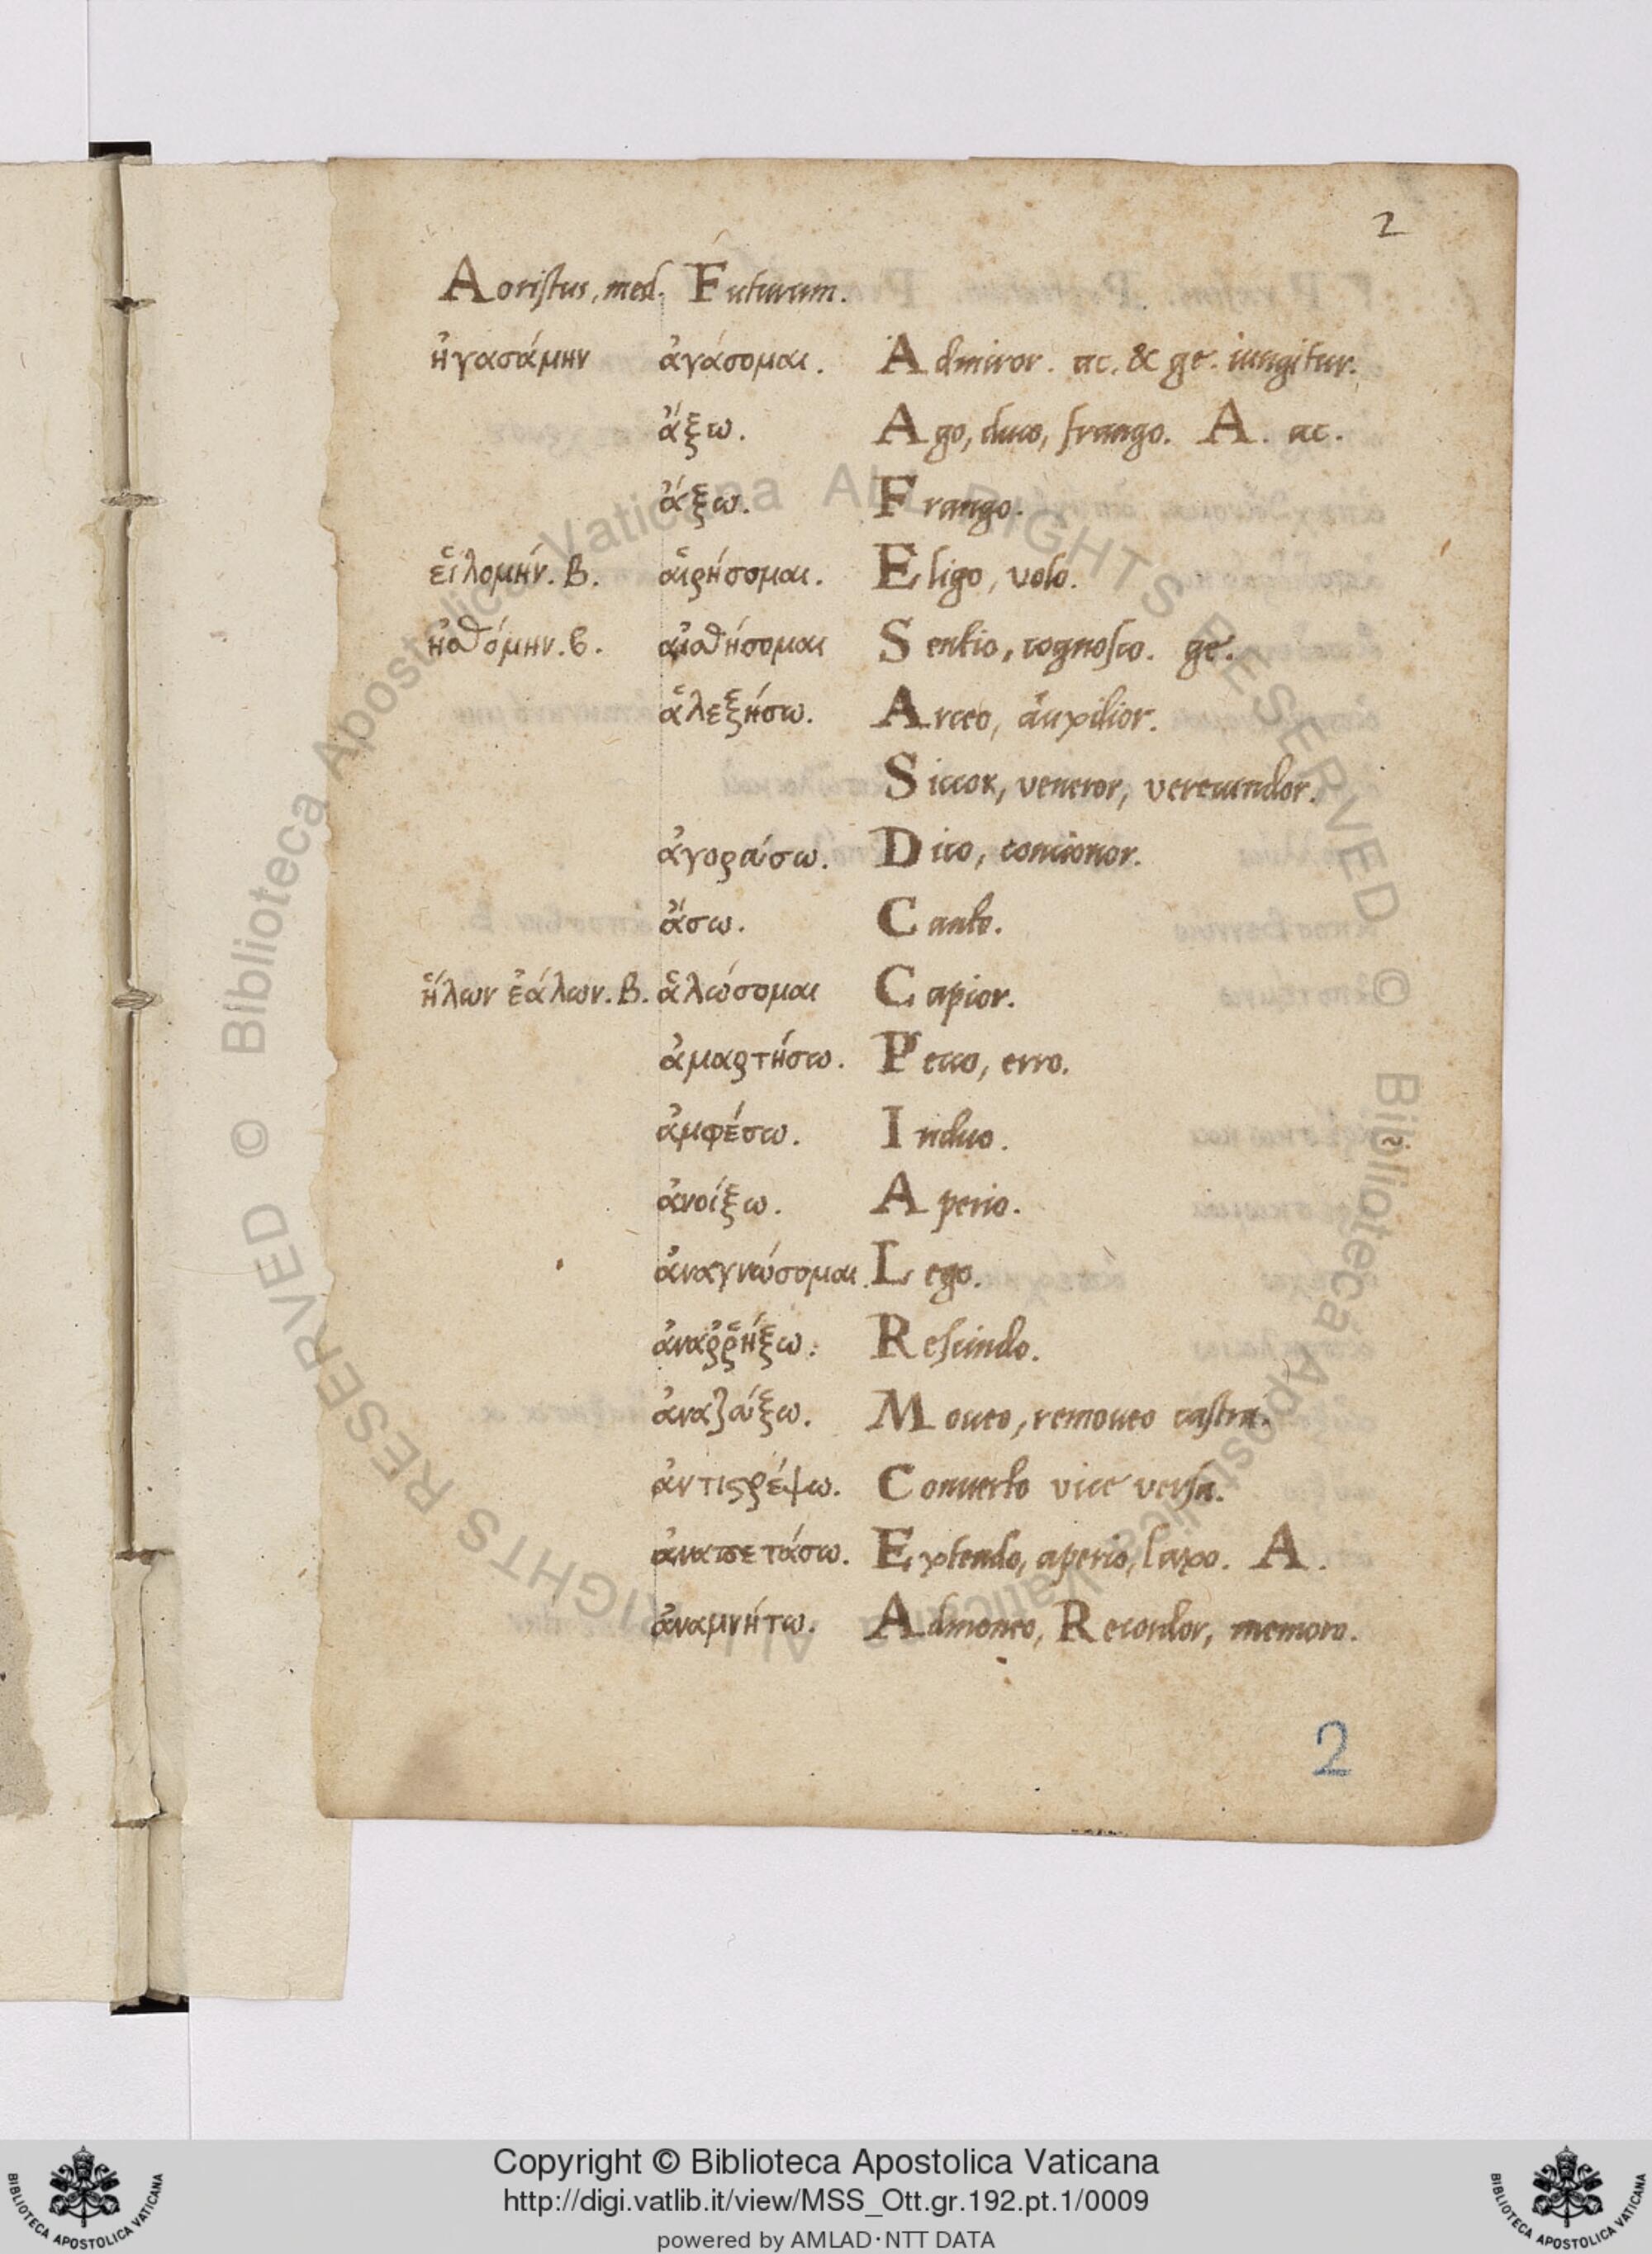 2
Aoristus, med. Futurum.
ἠγασάμην ἀγάσομαι. Admiror. ac. & ge. iungitur.
ἄξω. Ago, duco, frango. A. ac.
ἄξω. Frango.
εἱλομήν. B. αἱρήσομαι. Eligo, volo.
ἠσθόμην. β. αἰσθήσομαι Sentio, cognosco. ge.
ἁλεξήσω. Arceo, áuxilior.
Siccor, veneror, verecundor.
ἀγοράσω. Dico, concionor.
ἄσω. Canto.
ἥλων ἐάλων. B. ἁλώσομαι Capior.
ἀμαρτήσω. Pecco, erro.
ἀμφέσω. Induo.
ἀνοίξω. Aperio.
ἀναγνώσομαι. Lego.
ἀναῤῥήξω. Rescindo.
ἀναζάξω. Moueo, remoueo castra.
ἀντιστρέψω. Conuerto vice versa.
ἀναπετάσω. Extendo, aperio, laxo. A.
ἀναμνήτω. Admoneo, Recordor, memoro.
2
© Biblioteca Apostolica Vaticana ALL RIGHTS RESERVED © Biblioteca Apostolica Vaticana ALL RIGHTS RESERVED
Copyright © Biblioteca Apostolica Vaticana
http://digi.vatlib.it/view/MSS_Ott.gr.192.pt.1/0009
powered by AMLAD·NTT DATA
BIBLIOTECA APOSTOLICA VATICANA
BIBLIOTECA APOSTOLICA VATICANA